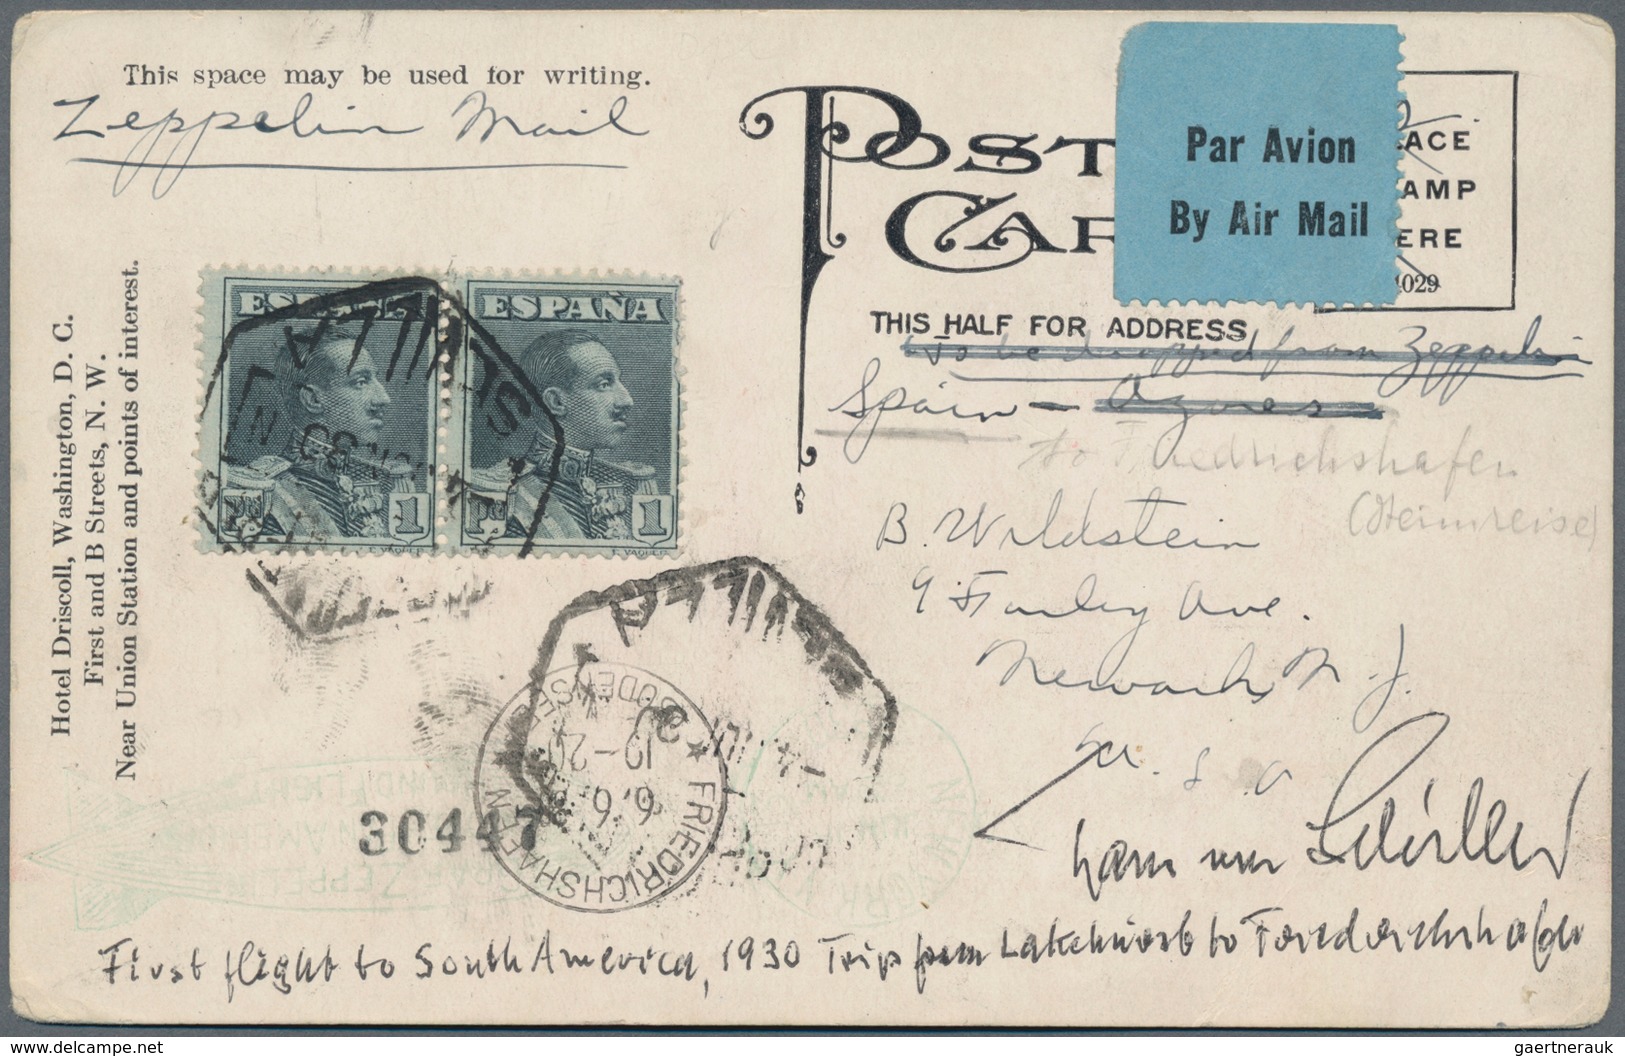 This space may be used for writing.
Zeppelin Mail
POST
CAR
Par Avion
By Air Mail
ACE
AMP
ERE
1029
THIS HALF FOR ADDRESS
To be dropped from Zeppelin
Spain - Azores
to Friedrichshafen
(Heimreise)
B. Wildstein
9 Farley Ave.
Newark N. J.
U. S. A
Hotel Driscoll, Washington, D. C.
First and B Streets, N. W.
Near Union Station and points of interest.
ESPAÑA
ESPAÑA
1
1
SEVILLA
SEVILLA
FRIEDRICHSHAFEN
BODENSEE
6.6.
30447
NEW YORK
Hans von Schiller
First flight to South America, 1930 Trip from Lakehurst to Friedrichshafen
gaertnerauk